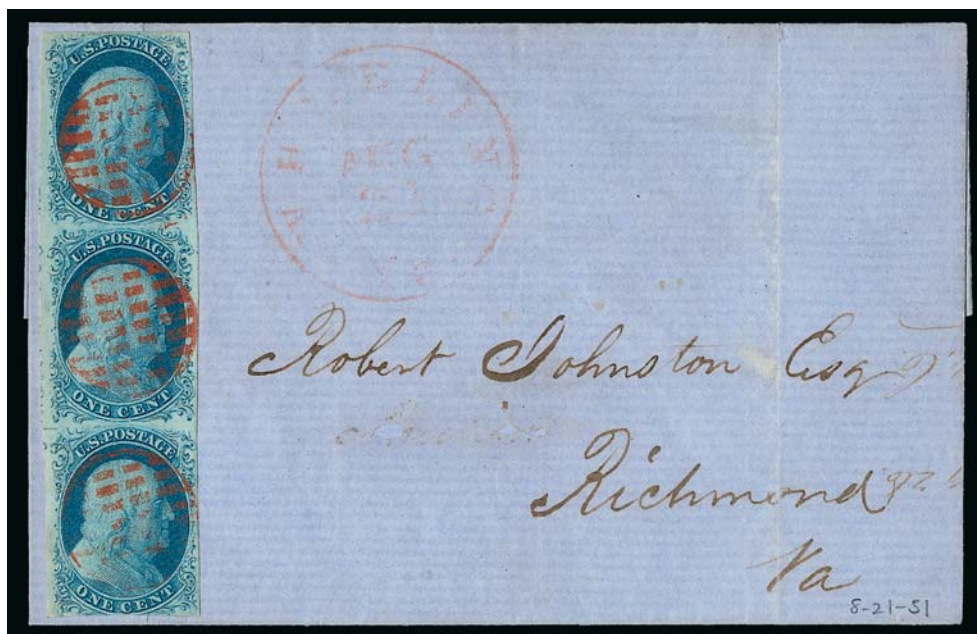 U.S. POSTAGE
ONE CENT
U.S. POSTAGE
ONE CENT
U.S. POSTAGE
ONE CENT
WHEELING
AUG
Va
Robert Johnston Esq
Richmond
Va
8-21-51